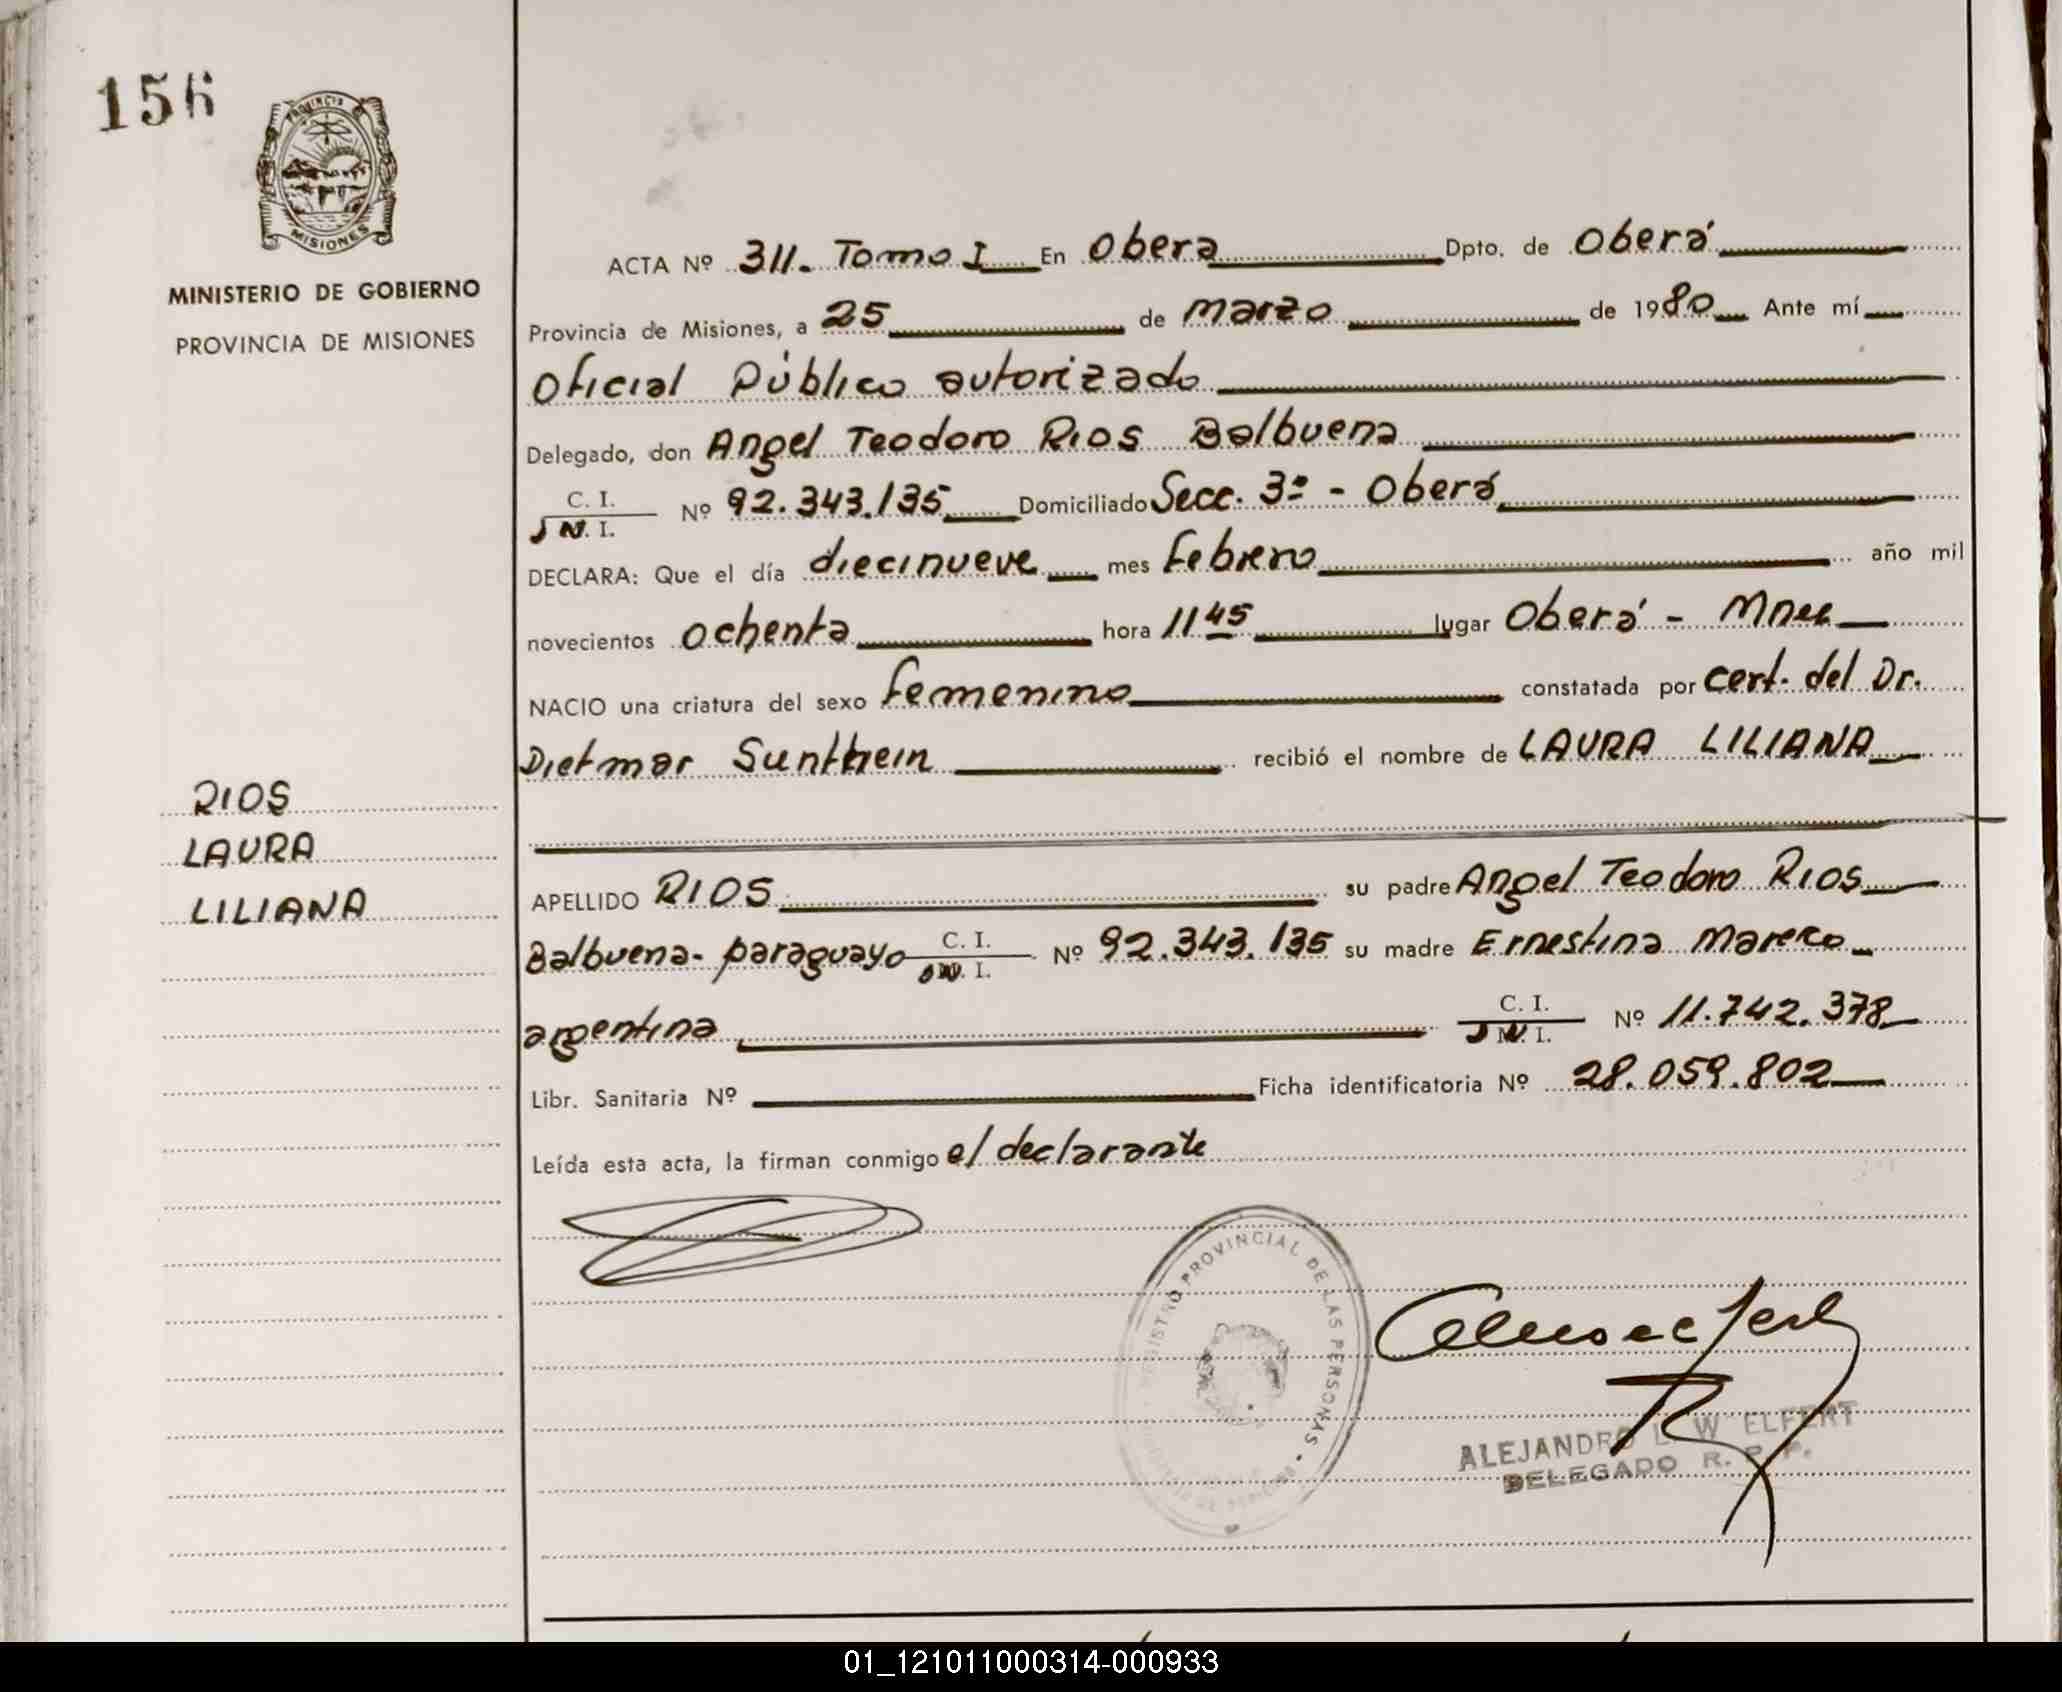 156
PROVINCIA
MISIONES
MINISTERIO DE GOBIERNO
PROVINCIA DE MISIONES
RIOS
LAURA
LILIANA
ACTA Nº 311. Tomo I En Obera Dpto. de Oberá
Provincia de Misiones, a 25 de Marzo de 1980 Ante mí
Oficial Público autorizado
Delegado, don Angel Teodoro Rios Balbuena
C. I. Nº 92.343.135 Domiciliado Secc. 3ª - Oberá
DECLARA: Que el día diecinueve mes Febrero año mil
novecientos ochenta hora 11 45 lugar Oberá -
NACIO una criatura del sexo femenino constatada por cert. del Dr.
Dietmar Sunthein recibió el nombre de LAURA LILIANA
APELLIDO RIOS su padre Angel Teodoro Rios
Balbuena - paraguayo C. I. Nº 92.343.135 su madre Ernestina Mareco
argentina C. I. Nº 11.742.378
Libr. Sanitaria Nº Ficha identificatoria Nº 28.059.802
Leída esta acta, la firman conmigo el declarante
REGISTRO PROVINCIAL DE LAS PERSONAS
ALEJANDRO L. W ELFERT
DELEGADO R. P. P.
01_121011000314-000933